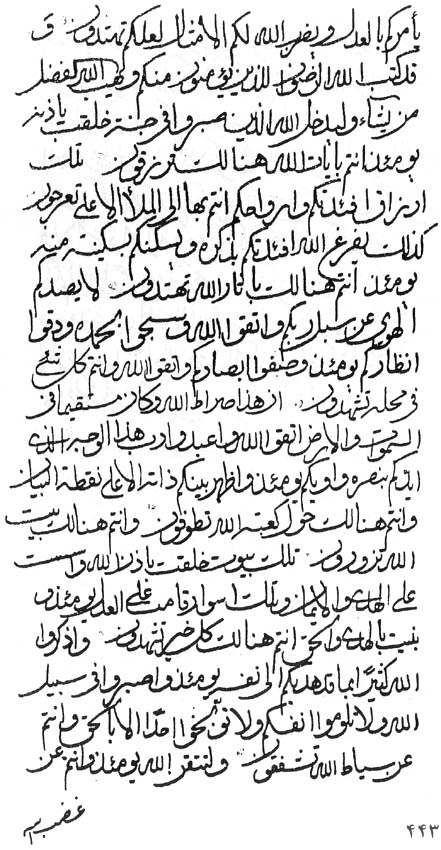 يأمركم بالعدل ويضرب الله لكم الامثال لعلكم تهتدون و
قد كتب الله الرضوان للذين يؤمنون منكم ويهب الله الفضل
من يشاء وليدخل الله الذين صبروا في جنة خلقت باذنه
يومئذ انتم بايات الله هنالك ترزقون تلك
ارزاق افئدتكم وارواحكم انتم بها الى الملأ الاعلى تعرجون
كذلك يفرغ الله افئدتكم بذكره ويسكنكم بسكينة منه
يومئذ انتم هنالك باثار الله تهتدون لا يصدكم
الهوى عن سبل ربكم واتقوا الله وسبحوا بحمده ودقوا
انظاركم يومئذ وصفوا ابصاركم واتقوا الله وانتم كل شيء
في محله تشهدون ان هذا صراط الله وكان مستقيما في
السموات والارض اتقوا الله واعبدوا رب هذا الوجه الذي
ايدكم بنصره و يومئذ واظهر بينكم ذاته الاعلى نقطة البيان
وانتم هنالك حول كعبة الله تطوفون وانتم هنالك بيت
الله تزورون تلك بيوت خلقت باذن الله واسست
على الهدى والايمان وتلك اسوار قامت على العدل يومئذ و
بنيت بالهدى والحق انتم هنالك كل خير تشهدون واذكروا
الله كثيرا بما قد هديكم الى نفسه يومئذ واصبروا في سبيل
الله ولا تلوموا انفسكم ولا احدا الا بالحق وانتم
عن سياط الله تشفقون ولتتقن الله يومئذ وانتم عن
غضب الله
۴۴۳